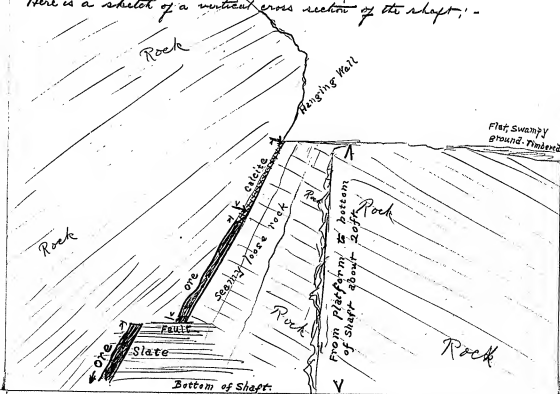 Here is a sketch of a vertical cross section of the shaft; -
Rock
Hanging Wall
Flat, Swampy
ground. Timbered
calcite
Rock
Rock
Rock
ore
Seamy loose rock
From platform to bottom
of Shaft about 20ft
Rock
Fault
ore
Slate
Rock
Bottom of Shaft.